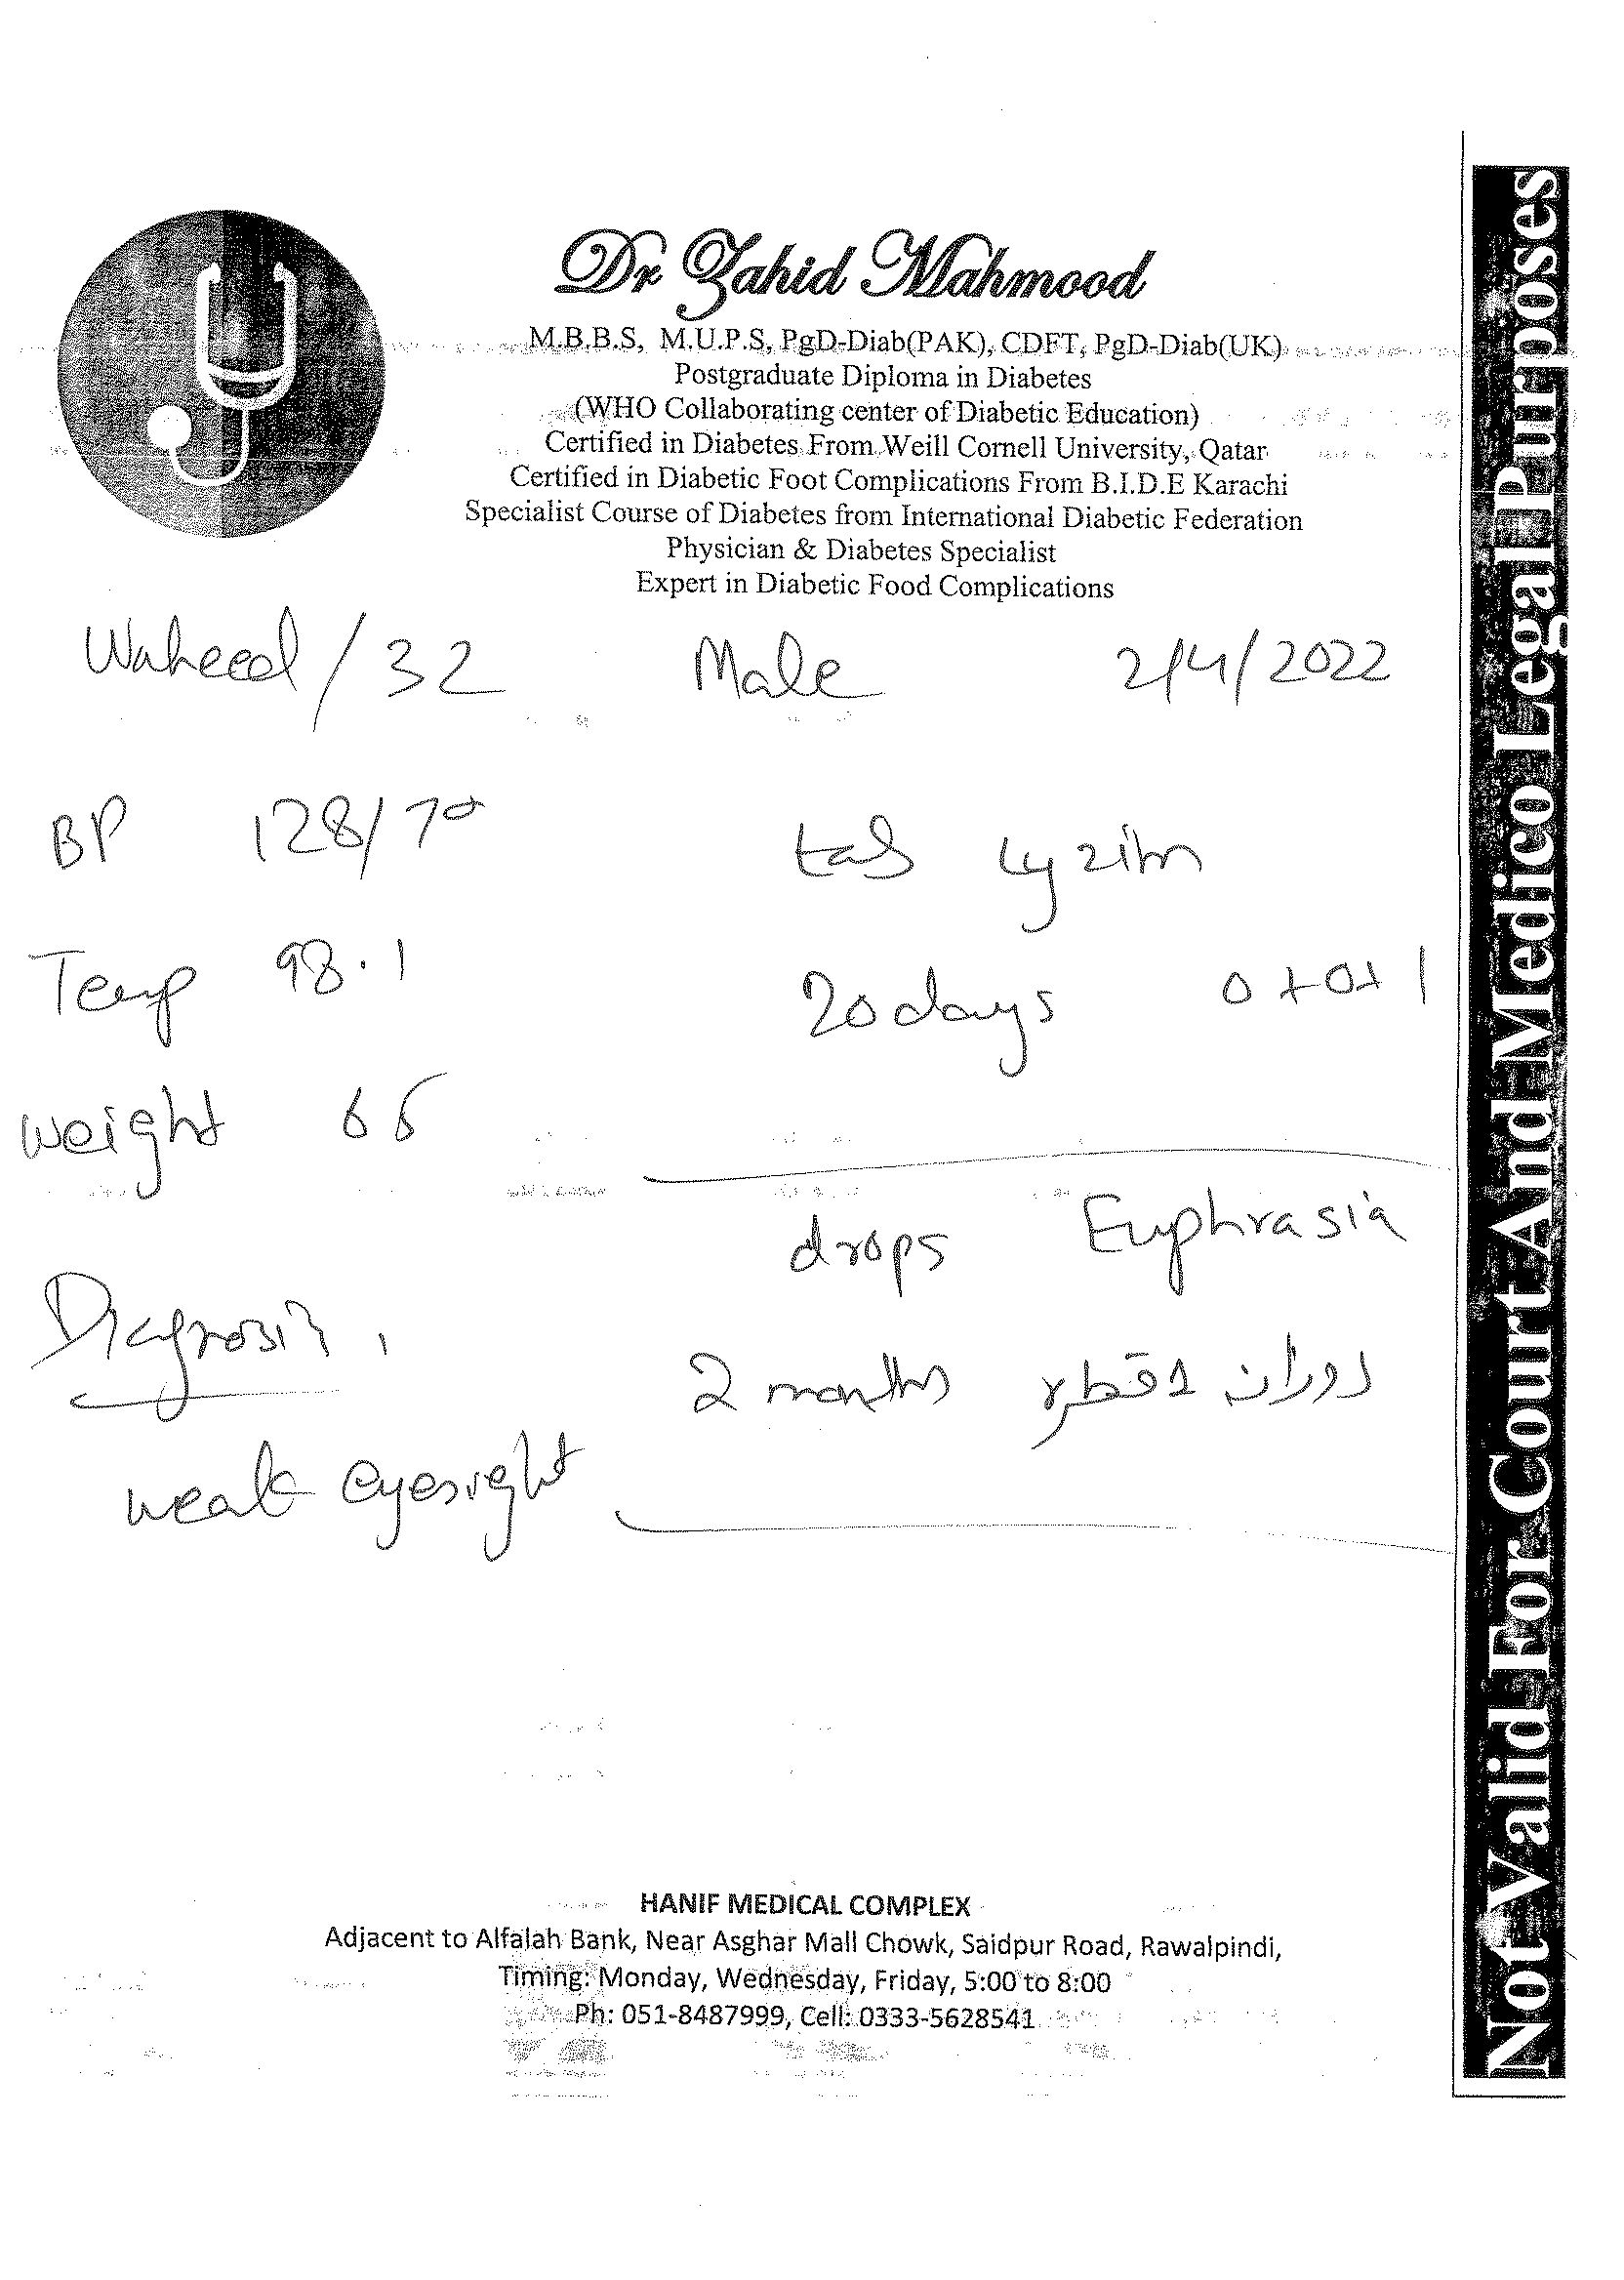 Dr Zahid Mahmood
M.B.B.S, M.U.P.S, PgD-Diab(PAK), CDFT, PgD-Diab(UK)
Postgraduate Diploma in Diabetes
(WHO Collaborating center of Diabetic Education)
Certified in Diabetes From Weill Cornell University, Qatar
Certified in Diabetic Foot Complications From B.I.D.E Karachi
Specialist Course of Diabetes from International Diabetic Federation
Physician & Diabetes Specialist
Expert in Diabetic Food Complications
Waheed / 32 Male 2/4/2022
BP 128/70
tab Lyzim
Temp 98.1
20 days 0+0+1
Weight 66
drops Euphrasia
Diagnosis,
2 months قطره
weak eyesight
HANIF MEDICAL COMPLEX
Adjacent to Alfalah Bank, Near Asghar Mall Chowk, Saidpur Road, Rawalpindi,
Timing: Monday, Wednesday, Friday, 5:00 to 8:00
Ph: 051-8487999, Cell: 0333-5628541
Not Valid For Court And Medico Legal Purposes